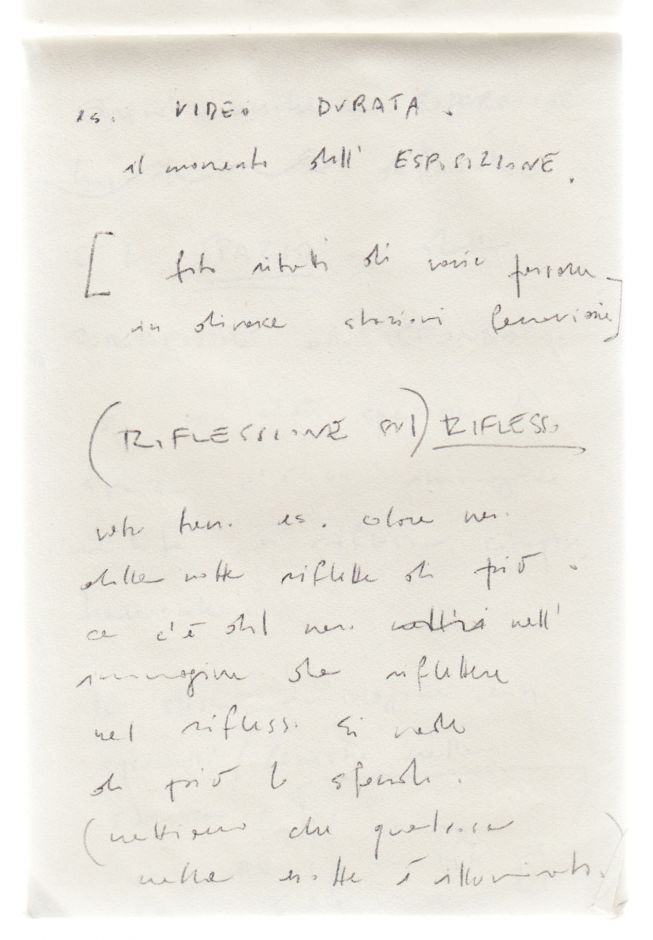 es. VIDEO DURATA.
il momento dell' ESPOSIZIONE.
[ foto ritratti di varie persone
in diverse stazioni ]
(RIFLESSIONE sul) RIFLESSO
vetro treno. es. colore nero
della notte riflette di più.
se c'è del nero nell'
immagine da riflettere
nel riflesso si vede
di più lo sfondo.
(mettiamo che qualcosa
nella notte è illuminato.)